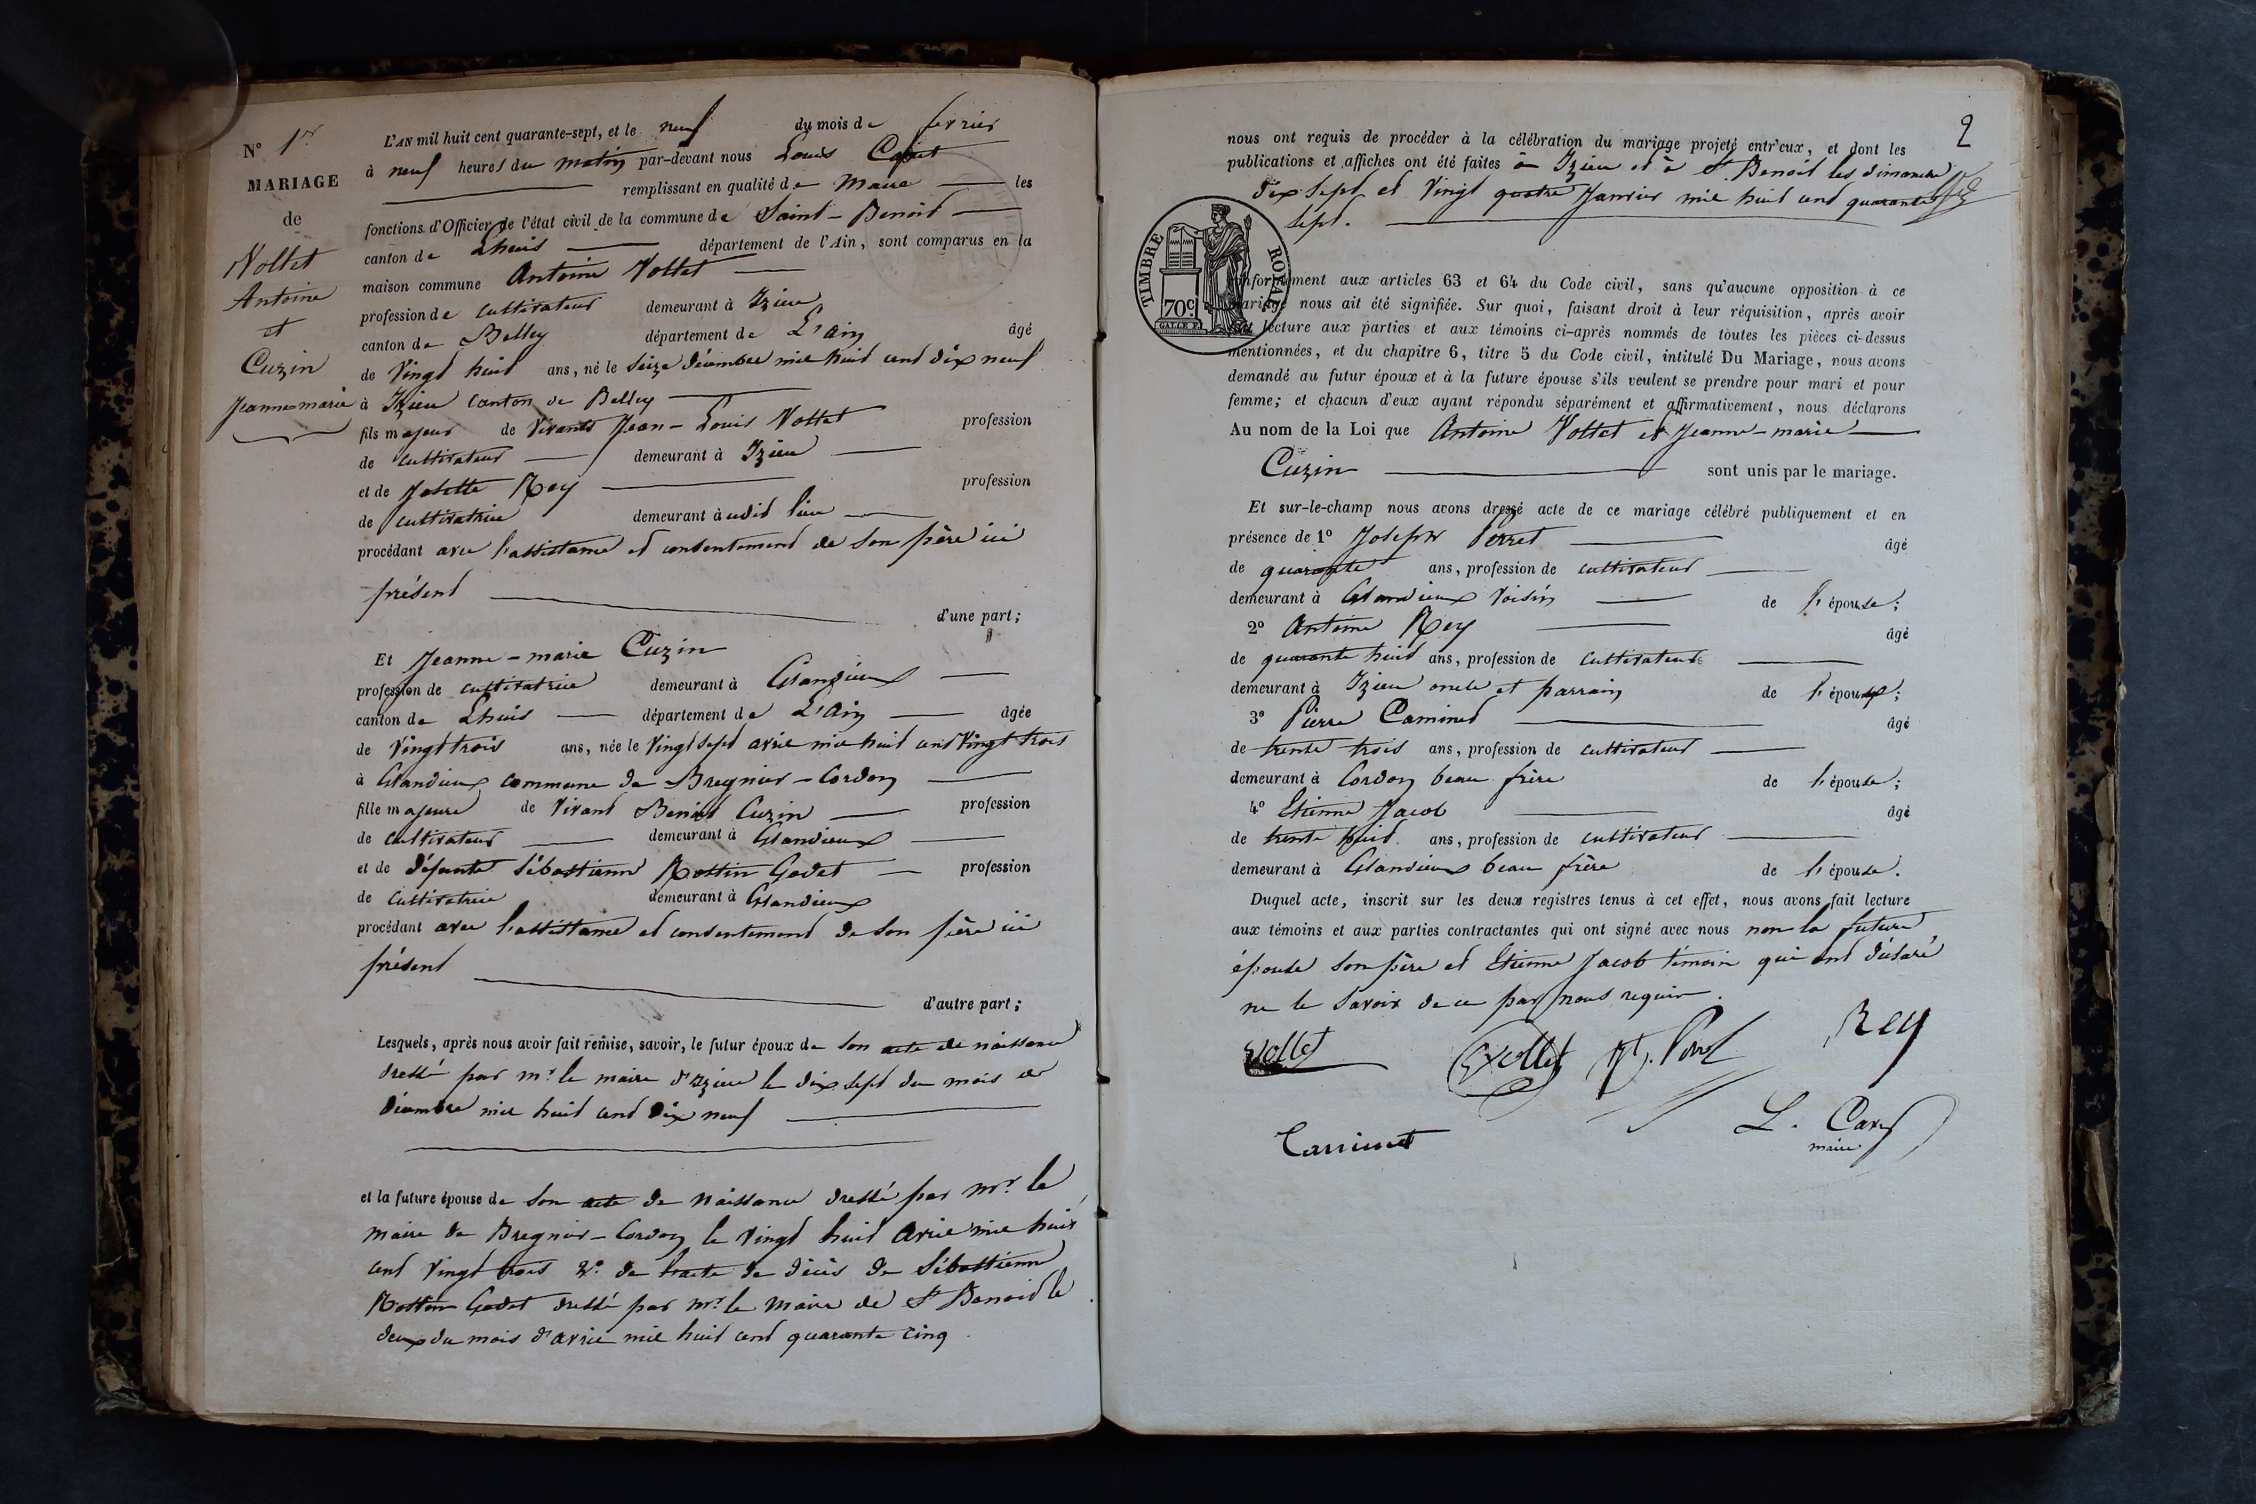 N° 1er
MARIAGE
de
Vollet
Antoine
et
Cuzin
Jeanne-marie
L'AN mil huit cent quarante-sept, et le neuf du mois de fevrier
à neuf heures du matin par-devant nous Louis
remplissant en qualité de Maire les
fonctions d'Officier de l'état civil de la commune de Saint-Benoit
canton de Lhuis département de l'Ain, sont comparus en la
maison commune Antoine Vollet
profession de cultivateur demeurant à Izieu
canton de Belley département de L'ain âgé
de vingt huit ans, né le seize décembre mil huit cent dix neuf
à Izieu canton de Belley
fils majeur de vivants Jean-Louis Vollet profession
de cultivateur demeurant à Izieu
et de Josette Rey profession
de cultivatrice demeurant à udit lieu
procédant avec l'assistance et consentement de son père ici
présent
d'une part;
Et Jeanne-marie Cuzin
profession de cultivatrice demeurant à Glandieux
canton de Lhuis département de L'Ain âgée
de vingt trois ans, née le vingt sept avril mil huit cent vingt trois
à Glandieux commune de Bregnier-Cordon
fille majeure de vivant Benoit Cuzin profession
de cultivateur demeurant à Glandieux
et de défunte Sébastienne Rostin Godet profession
de cultivatrice demeurant à Glandieux
procédant avec l'assistance et consentement de son père ici
présent
d'autre part;
Lesquels, après nous avoir fait remise, savoir, le futur époux de son acte de naissance
dressé par mr le maire d'Izieu le dix sept du mois de
décembre mil huit cent dix neuf
et la future épouse de son acte de naissance dressé par mr le
maire de Bregnier-Cordon le vingt huit avril mil huit
cent vingt trois 2° de l'acte de décès de Sébastienne
Rostin Godet dressé par mr le maire de St Benoit le
deux du mois d'avril mil huit cent quarante cinq
2
nous ont requis de procéder à la célébration du mariage projeté entr'eux, et dont les
publications et affiches ont été faites à Izieu et à St Benoit les dimanches
dix sept et vingt quatre Janvier mil huit cent quarante
sept.
TIMBRE ROYAL
70c
conformément aux articles 63 et 64 du Code civil, sans qu'aucune opposition à ce
mariage nous ait été signifiée. Sur quoi, faisant droit à leur réquisition, après avoir
fait lecture aux parties et aux témoins ci-après nommés de toutes les pièces ci-dessus
mentionnées, et du chapitre 6, titre 5 du Code civil, intitulé Du Mariage, nous avons
demandé au futur époux et à la future épouse s'ils veulent se prendre pour mari et pour
femme; et chacun d'eux ayant répondu séparément et affirmativement, nous déclarons
Au nom de la Loi que Antoine Vollet et Jeanne-marie
Cuzin sont unis par le mariage.
Et sur-le-champ nous avons dressé acte de ce mariage célébré publiquement et en
présence de 1° Joseph Perret âgé
de quarante ans, profession de cultivateur
demeurant à Glandieux voisin de l'épouse;
2° Antoine Rey âgé
de quarante huit ans, profession de cultivateur
demeurant à Izieu oncle et parrain de l'époux;
3° Pierre Caminet âgé
de trente trois ans, profession de cultivateur
demeurant à Cordon beau frère de l'épouse;
4° Etienne Jacob âgé
de trente huit ans, profession de cultivateur
demeurant à Glandieux beau frère de l'épouse.
Duquel acte, inscrit sur les deux registres tenus à cet effet, nous avons fait lecture
aux témoins et aux parties contractantes qui ont signé avec nous non la future
épouse son père et Etienne Jacob témoin qui ont déclaré
ne le savoir de ce par nous requis.
Vollet Vollet Rey
L.
maire
Caminet